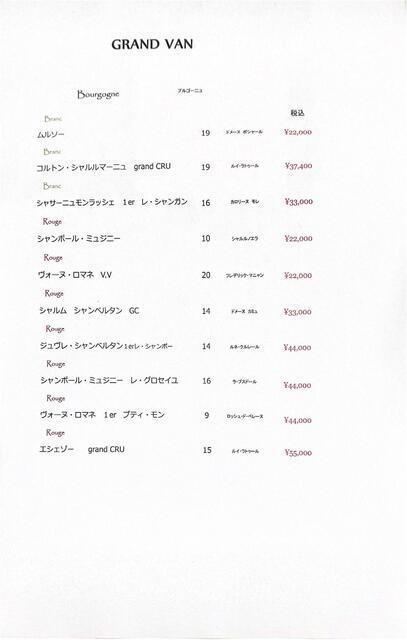 GRAND VAN
Bourgogne ブルゴーニュ
税込
Branc
ムルソー 19 ドメーヌ ポシャール ¥22,000
Branc
コルトン・シャルルマーニュ grand CRU 19 ルイ・ラトゥール ¥37,400
Branc
シャサーニュモンラッシェ 1er レ・シャンガン 16 カロリーヌ モレ ¥33,000
Rouge
シャンボール・ミュジニー 10 シャルルノエラ ¥22,000
Rouge
ヴォーヌ・ロマネ V.V 20 フレデリック・マニャン ¥22,000
Rouge
シャルム シャンベルタン GC 14 ドメーヌ カミュ ¥33,000
Rouge
ジュヴレ・シャンベルタン1erレ・シャンポー 14 ルネ・クルレール ¥44,000
Rouge
シャンボール・ミュジニー レ・グロセイユ 16 ラ・プスドール ¥44,000
Rouge
ヴォーヌ・ロマネ 1er プティ・モン 9 ロッシュ・ド・ベレーヌ ¥44,000
Rouge
エシェゾー grand CRU 15 ルイ・ラトゥール ¥55,000